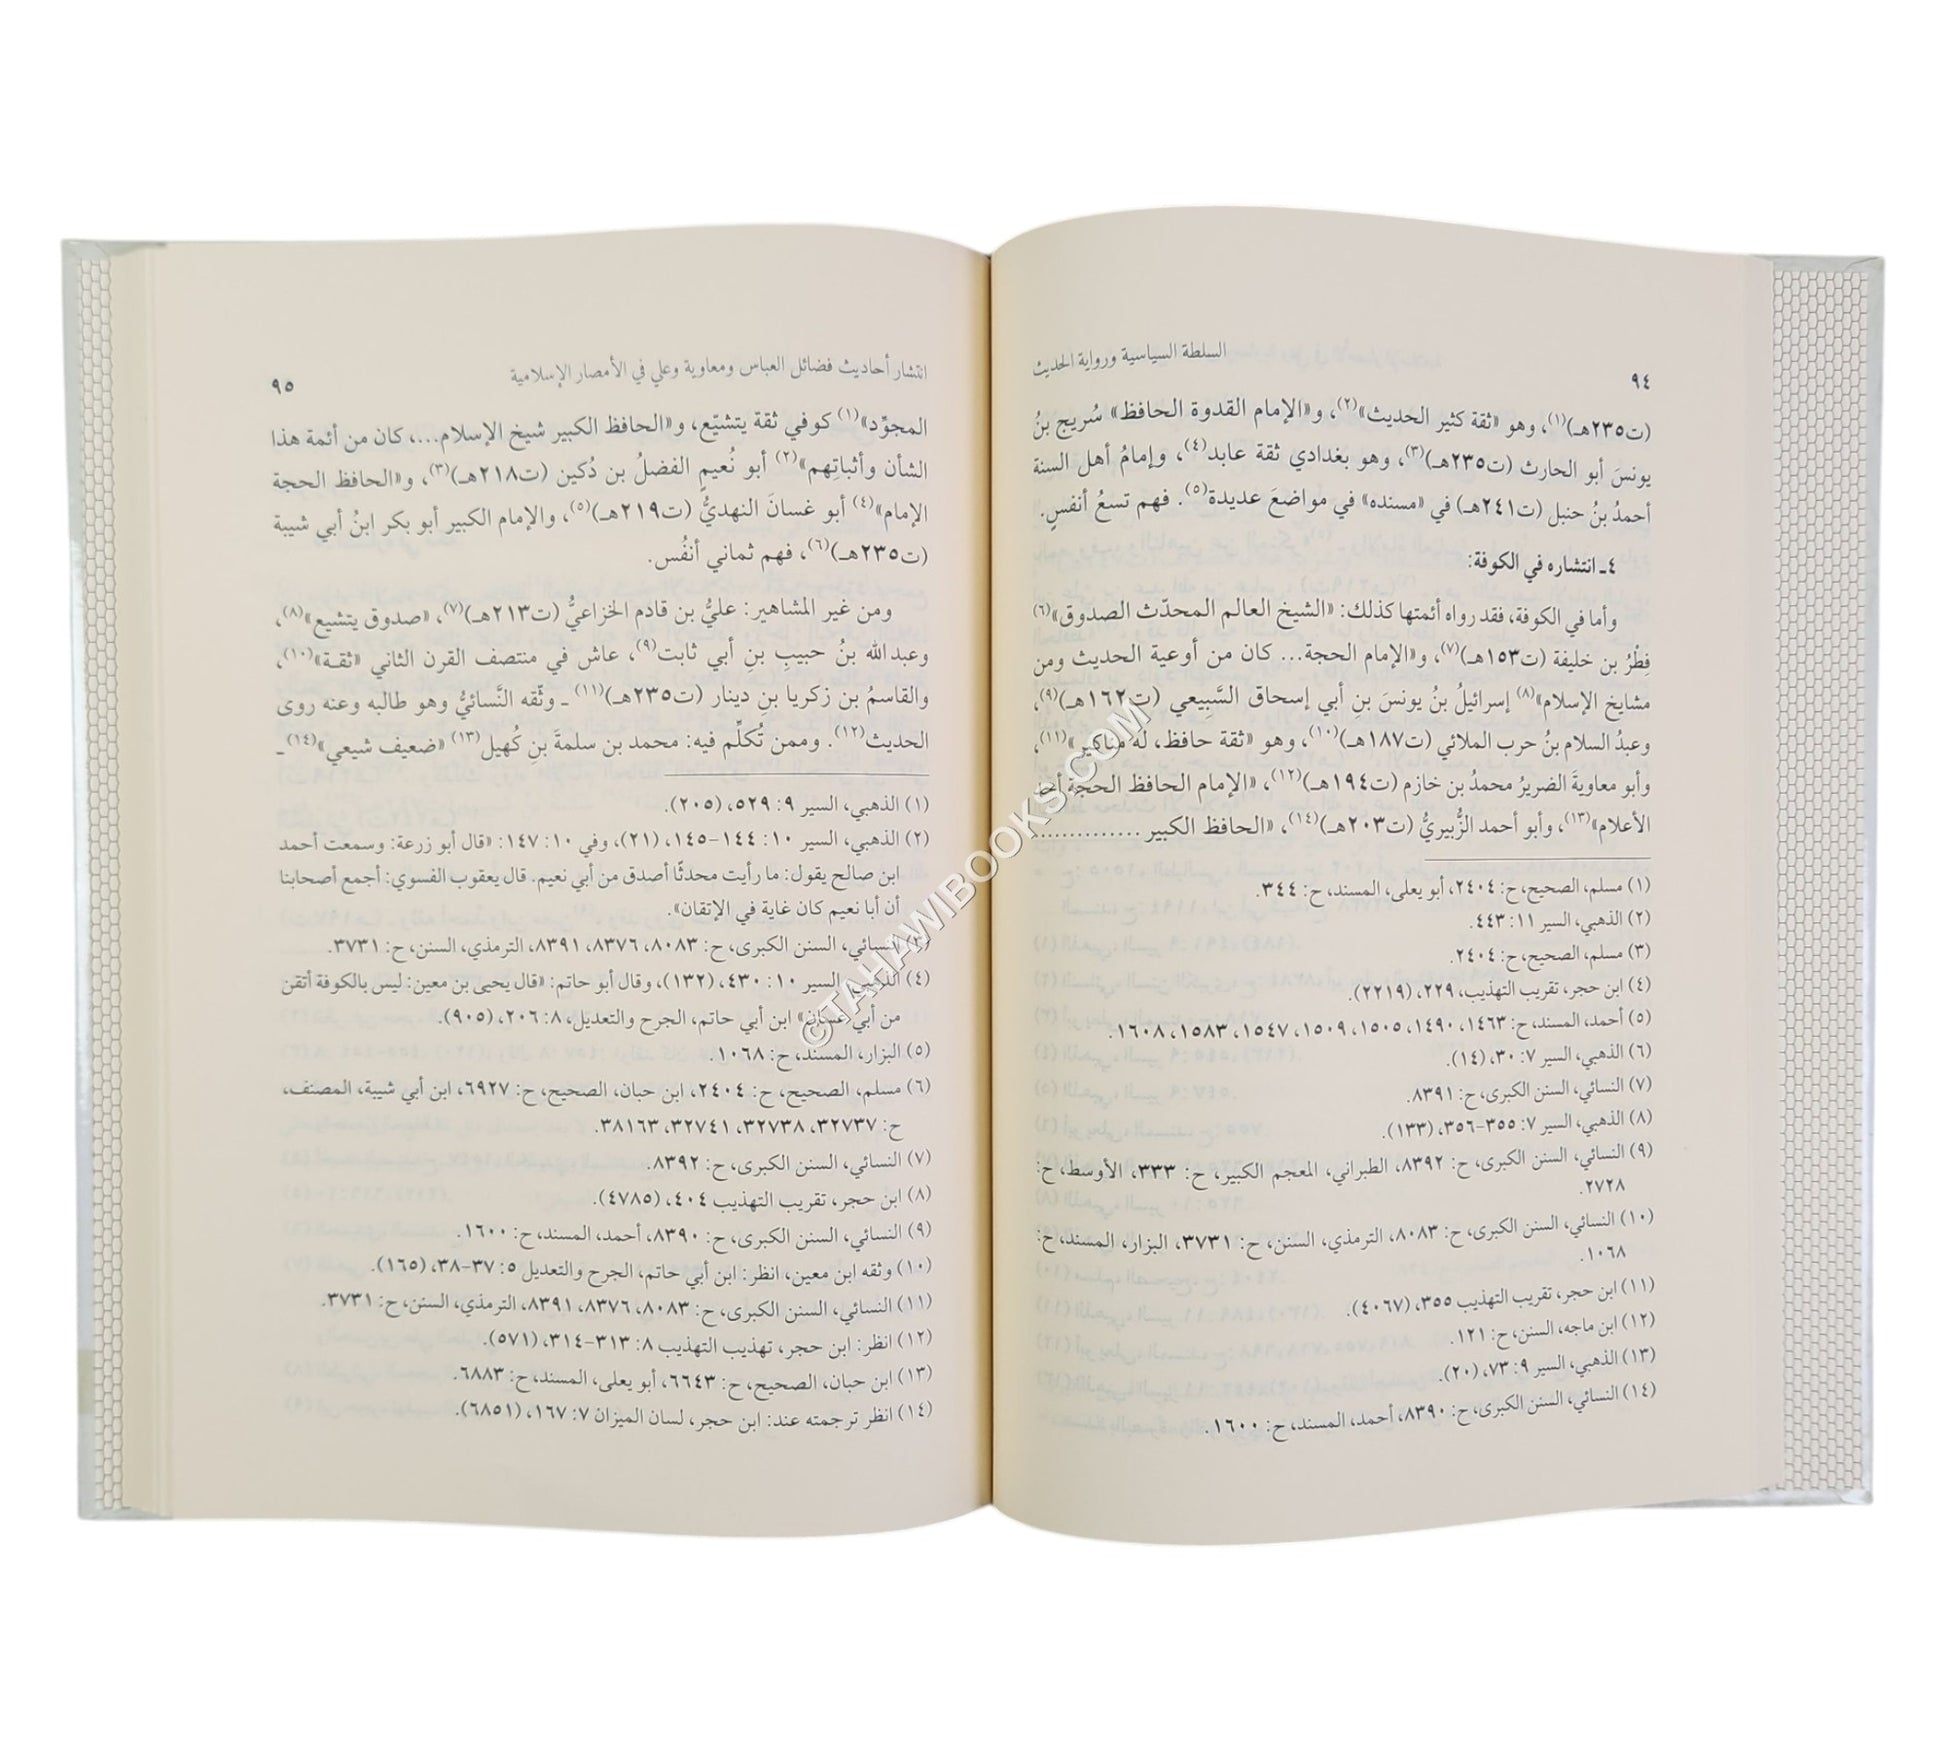 السلطة السياسية ورواية الحديث
٩٤
(ت٢٣٥هـ)(١)، وهو «ثقة كثير الحديث»(٢)، و«الإمام القدوة الحافظ» سُريج بنُ
يونسَ أبو الحارث (ت٢٣٥هـ)(٣)، وهو بغدادي ثقة عابد(٤)، وإمامُ أهل السنة
أحمدُ بنُ حنبل (ت٢٤١هـ) في «مسنده» في مواضعَ عديدة(٥). فهم تسعُ أنفسٍ.
٤ـ انتشاره في الكوفة:
وأما في الكوفة، فقد رواه أئمتها كذلك: «الشيخ العالم المحدّث الصدوق»(٦)
فِطْرُ بن خليفة (ت١٥٣هـ)(٧)، و«الإمام الحجة... كان من أوعية الحديث ومن
مشايخ الإسلام»(٨) إسرائيلُ بنُ يونسَ بنِ أبي إسحاق السَّبِيعي (ت١٦٢هـ)(٩)،
وعبدُ السلام بنُ حرب الملائي (ت١٨٧هـ)(١٠)، وهو «ثقة حافظ، له مناكير»(١١)،
وأبو معاويةَ الضريرُ محمدُ بن خازم (ت١٩٤هـ)(١٢)، «الإمام الحافظ الحجة أحد
الأعلام»(١٣)، وأبو أحمد الزُّبيريُّ (ت٢٠٣هـ)(١٤)، «الحافظ الكبير .............
(١) مسلم، الصحيح، ح: ٢٤٠٤، أبو يعلى، المسند، ح: ٣٤٤.
(٢) الذهبي، السير ١١: ٤٤٣.
(٣) مسلم، الصحيح، ح: ٢٤٠٤.
(٤) ابن حجر، تقريب التهذيب، ٢٢٩، (٢٢١٩).
(٥) أحمد، المسند، ح: ١٤٦٣، ١٤٩٠، ١٥٠٥، ١٥٠٩، ١٥٤٧، ١٥٨٣، ١٦٠٨.
(٦) الذهبي، السير ٧: ٣٠، (١٤).
(٧) النسائي، السنن الكبرى، ح: ٨٣٩١.
(٨) الذهبي، السير ٧: ٣٥٥-٣٥٦، (١٣٣).
(٩) النسائي، السنن الكبرى، ح: ٨٣٩٢، الطبراني، المعجم الكبير، ح: ٣٣٣، الأوسط، ح:
٢٧٢٨.
(١٠) النسائي، السنن الكبرى، ح: ٨٠٨٣، الترمذي، السنن، ح: ٣٧٣١، البزار، المسند، ح:
١٠٦٨.
(١١) ابن حجر، تقريب التهذيب ٣٥٥، (٤٠٦٧).
(١٢) ابن ماجه، السنن، ح: ١٢١.
(١٣) الذهبي، السير ٩: ٧٣، (٢٠).
(١٤) النسائي، السنن الكبرى، ح: ٨٣٩٠، أحمد، المسند، ح: ١٦٠٠.
انتشار أحاديث فضائل العباس ومعاوية وعلي في الأمصار الإسلامية
٩٥
المجوِّد»(١) كوفي ثقة يتشيّع، و«الحافظ الكبير شيخ الإسلام...، كان من أئمة هذا
الشأن وأثباتِهم»(٢) أبو نُعيمٍ الفضلُ بن دُكين (ت٢١٨هـ)(٣)، و«الحافظ الحجة
الإمام»(٤) أبو غسانَ النهديُّ (ت٢١٩هـ)(٥)، والإمام الكبير أبو بكر ابنُ أبي شيبة
(ت٢٣٥هـ)(٦)، فهم ثماني أنفُس.
ومن غير المشاهير: عليُّ بن قادم الخزاعيُّ (ت٢١٣هـ)(٧)، «صدوق يتشيع»(٨)،
وعبد الله بنُ حبيبِ بنِ أبي ثابت(٩)، عاش في منتصف القرن الثاني «ثقة»(١٠)،
والقاسمُ بن زكريا بنِ دينار (ت٢٣٥هـ)(١١) ـ وثّقه النَّسائيُّ وهو طالبه وعنه روى
الحديث(١٢). وممن تُكلِّم فيه: محمد بن سلمةَ بنِ كُهيل(١٣) «ضعيف شيعي»(١٤) ـ
(١) الذهبي، السير ٩: ٥٢٩، (٢٠٥).
(٢) الذهبي، السير ١٠: ١٤٤-١٤٥، (٢١)، وفي ١٠: ١٤٧: «قال أبو زرعة: وسمعت أحمد
ابن صالح يقول: ما رأيت محدثًا أصدق من أبي نعيم. قال يعقوب الفسوي: أجمع أصحابنا
أن أبا نعيم كان غاية في الإتقان».
(٣) النسائي، السنن الكبرى، ح: ٨٠٨٣، ٨٣٧٦، ٨٣٩١، الترمذي، السنن، ح: ٣٧٣١.
(٤) الذهبي، السير ١٠: ٤٣٠، (١٣٢)، وقال أبو حاتم: «قال يحيى بن معين: ليس بالكوفة أتقن
من أبي غسان» ابن أبي حاتم، الجرح والتعديل، ٨: ٢٠٦، (٩٠٥).
(٥) البزار، المسند، ح: ١٠٦٨.
(٦) مسلم، الصحيح، ح: ٢٤٠٤، ابن حبان، الصحيح، ح: ٦٩٢٧، ابن أبي شيبة، المصنف،
ح: ٣٢٧٣٧، ٣٢٧٣٨، ٣٢٧٤١، ٣٨١٦٣.
(٧) النسائي، السنن الكبرى، ح: ٨٣٩٢.
(٨) ابن حجر، تقريب التهذيب ٤٠٤، (٤٧٨٥).
(٩) النسائي، السنن الكبرى، ح: ٨٣٩٠، أحمد، المسند، ح: ١٦٠٠.
(١٠) وثقه ابن معين، انظر: ابن أبي حاتم، الجرح والتعديل ٥: ٣٧-٣٨، (١٦٥).
(١١) النسائي، السنن الكبرى، ح: ٨٠٨٣، ٨٣٧٦، ٨٣٩١، الترمذي، السنن، ح: ٣٧٣١.
(١٢) انظر: ابن حجر، تهذيب التهذيب ٨: ٣١٣-٣١٤، (٥٧١).
(١٣) ابن حبان، الصحيح، ح: ٦٦٤٣، أبو يعلى، المسند، ح: ٦٨٨٣.
(١٤) انظر ترجمته عند: ابن حجر، لسان الميزان ٧: ١٦٧، (٦٨٥١).
©TAHAWIBOOKS.COM